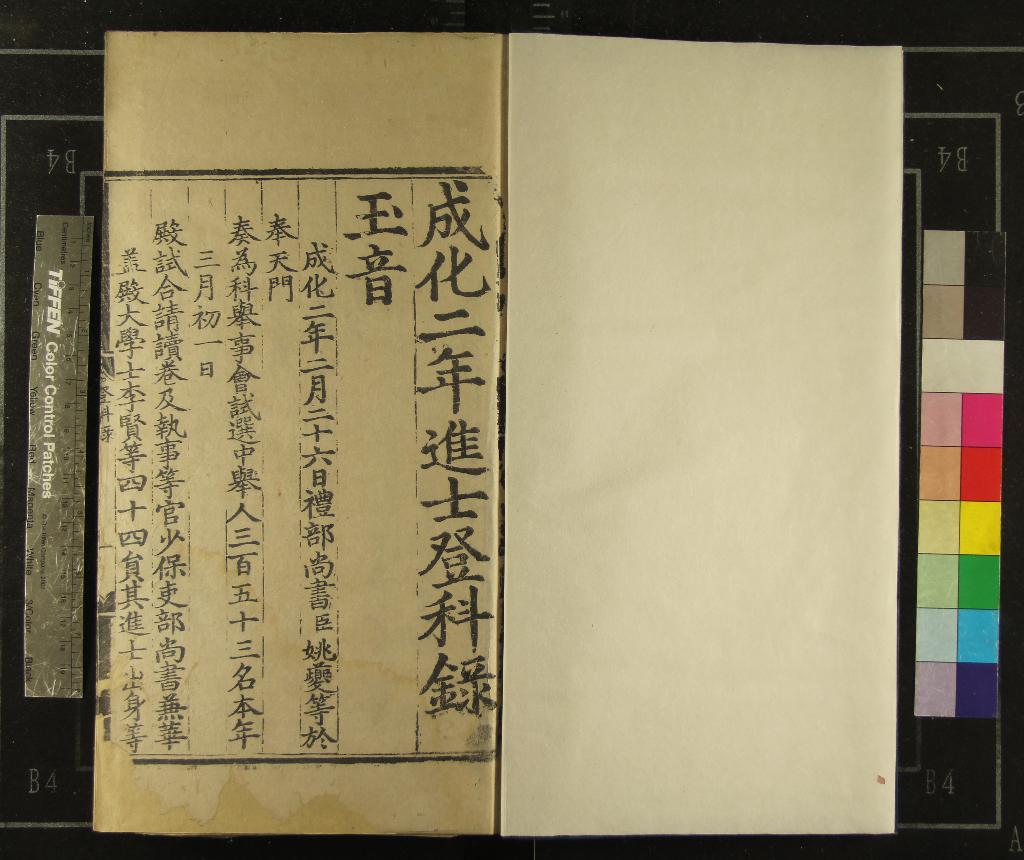 成化二年進士登科錄
玉音
成化二年二月二十六日禮部尚書臣姚夔等於
奉天門
奏為科舉事會試選中舉人三百五十三名本年
三月初一日
殿試合請讀卷及執事等官少保吏部尚書兼華
蓋殿大學士李賢等四十四員其進士出身等
登科錄
TIFFEN Color Control Patches
Centimetres
Blue
Cyan
Green
Yellow
Red
Magenta
White
3/Color
Black
B4
B4
B4
B4
A